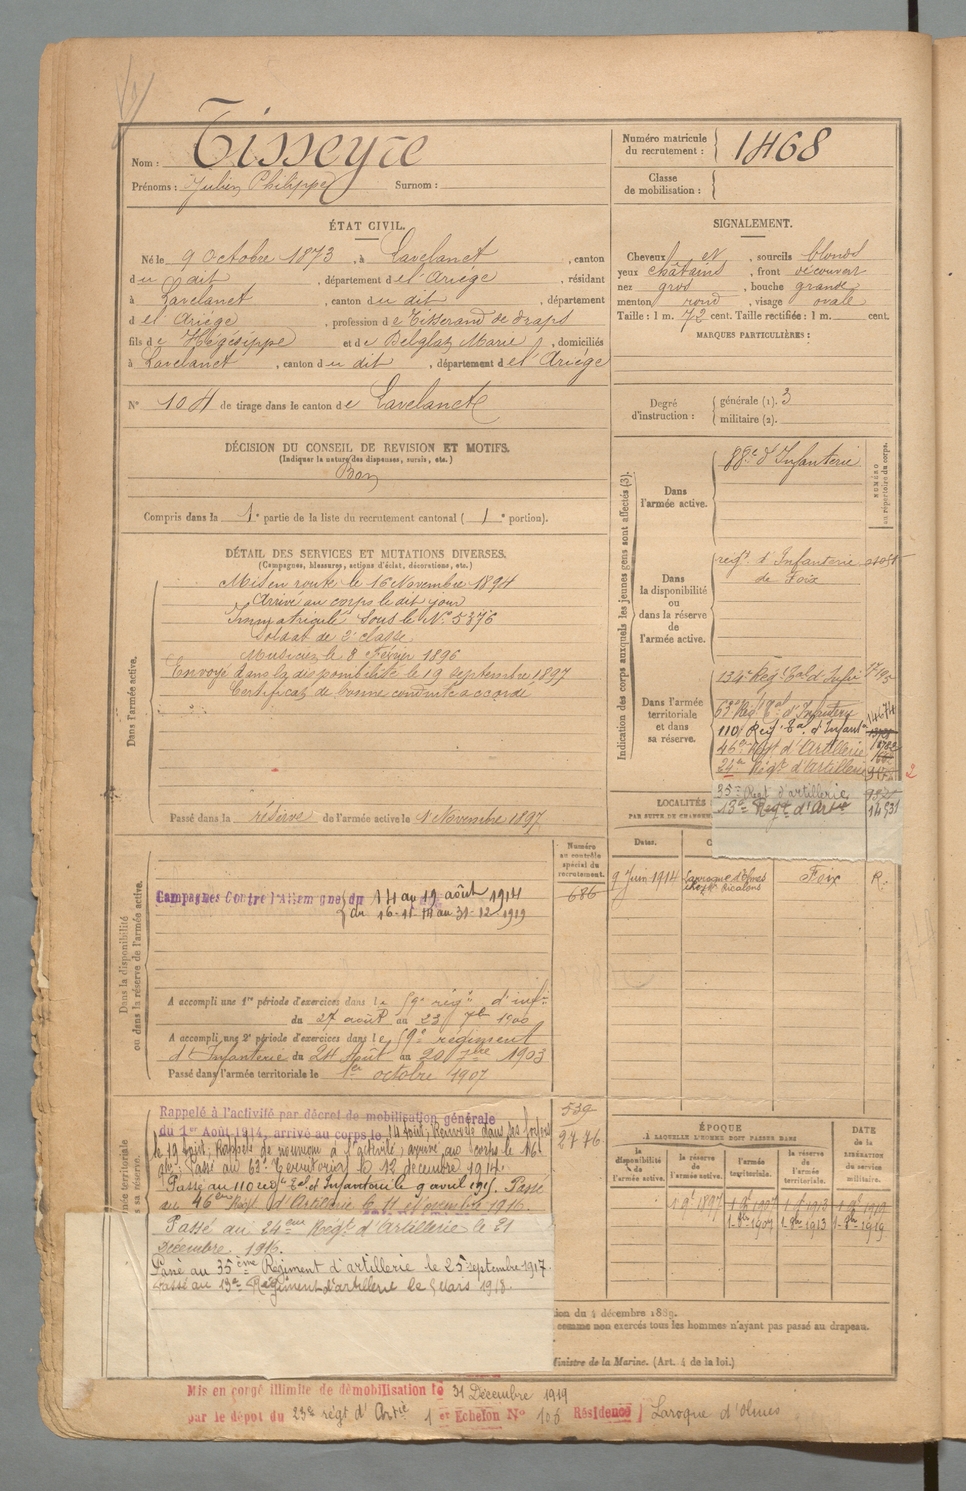 Nom : Tisseyre
Prénoms : Julien Philippe Surnom :
Numéro matricule du recrutement : 1468
Classe de mobilisation :
ÉTAT CIVIL.
Né le 9 Octobre 1873, à Lavelanet, canton
du dit, département de l'Ariège, résidant
à Lavelanet, canton du dit, département
de l'Ariège, profession de Tisserand de draps
fils de Hégésippe et de Marie, domiciliés
à Lavelanet, canton du dit, département de l'Ariège
N° 104 de tirage dans le canton de Lavelanet
SIGNALEMENT.
Cheveux et, sourcils blonds
yeux châtains, front découvert
nez gros, bouche grande
menton rond, visage ovale
Taille : 1 m. 72 cent. Taille rectifiée : 1 m. cent.
MARQUES PARTICULIÈRES :
Degré d'instruction : générale (1). 3
militaire (2).
DÉCISION DU CONSEIL DE REVISION ET MOTIFS.
(Indiquer la nature des dispenses, sursis, etc.)
Bon
Compris dans la 1e partie de la liste du recrutement cantonal (1e portion).
DÉTAIL DES SERVICES ET MUTATIONS DIVERSES.
(Campagnes, blessures, actions d'éclat, décorations, etc.)
Dans l'armée active.
Mis en route le 16 Novembre 1894
Arrivé au corps le dit jour
Immatriculé sous le N° 5376
Soldat de 2e classe
Musicien le 8 Février 1896
Envoyé dans la disponibilité le 19 Septembre 1897
Certificat de bonne conduite accordé
Passé dans la réserve de l'armée active le 1 Novembre 1897
Indication des corps auxquels les jeunes gens sont affectés (3).
NUMÉRO au répertoire du corps.
Dans l'armée active.
88e d'Infanterie
Dans la disponibilité ou dans la réserve de l'armée active.
régt d'Infanterie
de Foix
Dans l'armée territoriale et dans sa réserve.
134e Rég. Tal d'Infie
63e Rég. Tal d'Infanterie
110 Reg. Tal d'Infant.
46e Régt d'Artillerie
24e Régt d'Artillerie
35e Regt d'artillerie
13e Regt d'Artie
2
LOCALITÉS
PAR SUITE DE
Dates.
9 Juin 1914 Laroque d'Olmes Foix R.
Dans la disponibilité ou dans la réserve de l'armée active.
Numéro au contrôle spécial du recrutement.
686
Campagnes Contre l'Allemagne du 14 au 19 août 1914
du 16-11-14 au 31-12-1919
A accompli une 1re période d'exercices dans le 59e régt d'infie
du 27 août au 23 7bre 1900
A accompli une 2e période d'exercices dans le 59e régiment
d'Infanterie du 24 Août au 20 7bre 1903
Passé dans l'armée territoriale le 1er octobre 1907
539
2776
Rappelé à l'activité par décret de mobilisation générale
du 1er Août 1914, arrivé au corps le 14 août, Renvoyé dans ses foyers
le 19 août, Rappelé de nouveau à l'activité, arrivé au corps le 16
9bre. Passé au 63e Territorial le 12 decembre 1914.
Passé au 110 regt Tal d'Infanterie le 9 avril 1915. Passé
au 46ème Régt d'Artillerie le 11 novembre 1916.
Passé au 24ème Régt d'Artillerie le 21
Décembre 1916.
Passé au 35ème Régiment d'artillerie le 25 septembre 1917.
Passé au 13e Régiment d'artillerie le 5 Mars 1918.
ÉPOQUE
À LAQUELLE L'HOMME DOIT PASSER DANS
la disponibilité de l'armée active.
la réserve de l'armée active.
l'armée territoriale.
la réserve de l'armée territoriale.
DATE de la LIBÉRATION du service militaire.
1 9bre 1897
1 8bre 1907
1 8bre 1913
1 8bre 1919
tion du 4 décembre 1889.
comme non exercés tous les hommes n'ayant pas passé au drapeau.
Ministre de la Marine. (Art. 4 de la loi.)
Mis en congé illimité de démobilisation le 31 Décembre 1919
par le dépôt du 23e régt d'Artie 1er Echelon N° 106 Résidence Laroque d'Olmes